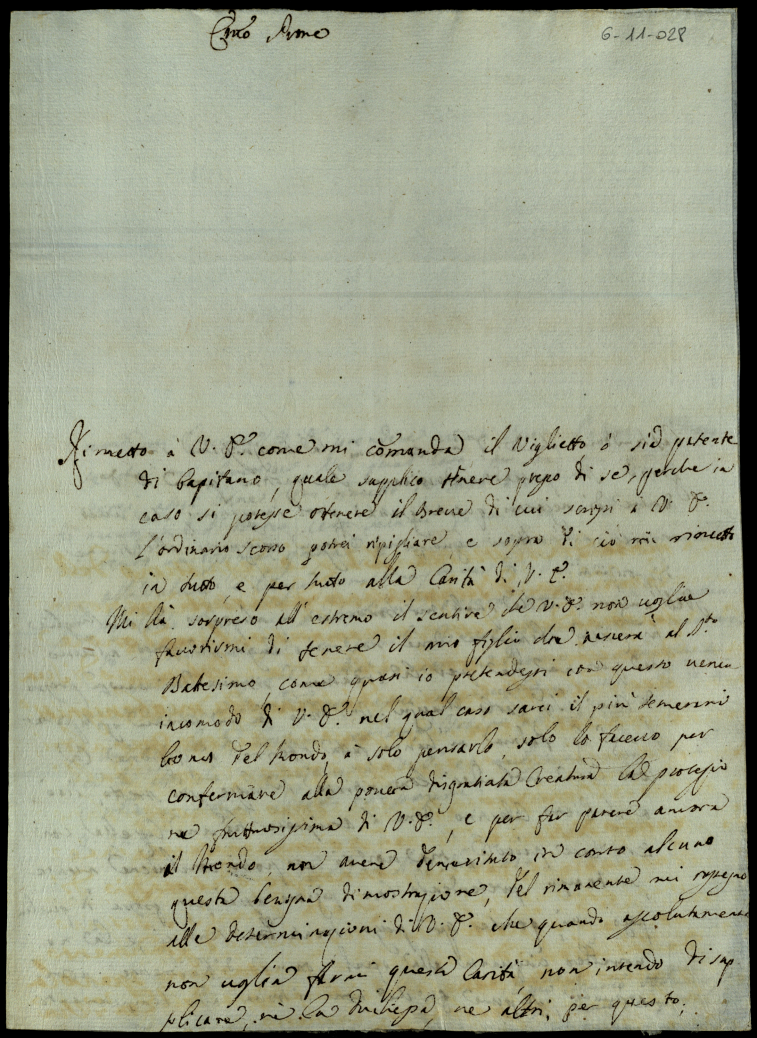 Ecc.mo Sig.re
6-11-028
Rimetto à V. E. come mi comanda il Viglietto ò sia patente
di Capitano, quale supplico tenere presso di se, perche in
caso si potesse ottenere il Breve di cui scrissi à V. E.
l'ordinario scorso potrei ripigliare, e sopra di ciò mi rimetto
in tutto, e per tutto alla Carità di V. E.
Mi hà sorpreso all'estremo il sentire che V. E. non voglia
favorirmi di tenere il mio figlio che nascerà al S.to
Battesimo, come quasi io pretendessi con questo
incomodo di V. E. nel qual caso sarei il più temerario
huomo del Mondo, à solo pensarlo, solo lo facevo per
confermare alla povera disgratiata Creatura la protezzio
ne fruttuosissima di V. E., e per far parere ancora
al Mondo, non avere demeritato in conto alcuno
questa benigna dimostrazione, del rimanente mi rassegno
alle determinazioni di V. E. che quando assolutamente
non voglia farmi questa Carità, non intendo di sup
plicare, ne la Duchessa, ne altri per questo;